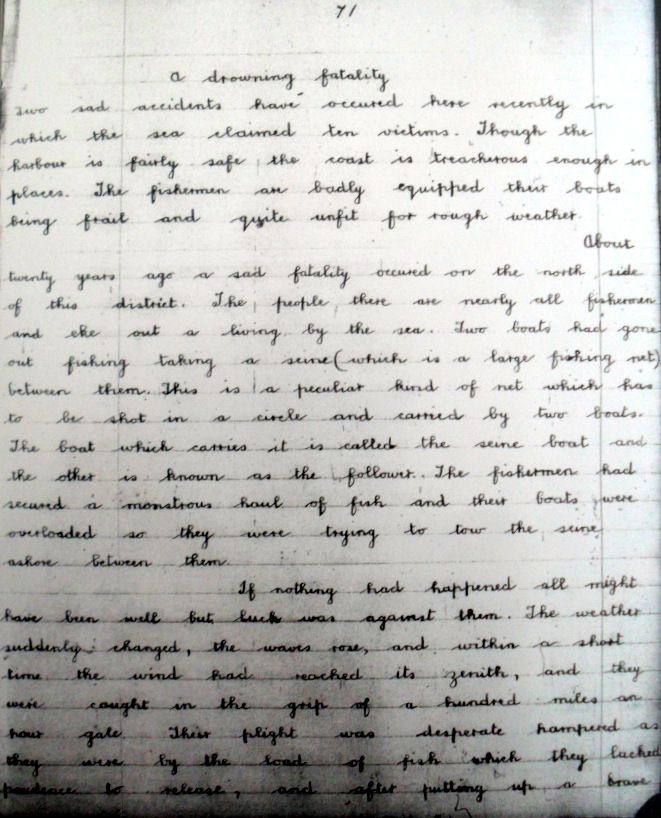 71
A drowning fatality
Two sad accidents have occured here recently in
which the sea claimed ten victims. Though the
harbour is fairly safe the coast is treacherous enough in
places. The fishermen are badly equipped their boats
being frail and quite unfit for rough weather.
About
twenty years ago a sad fatality occured on the north side
of this district. The people there are nearly all fishermen
and eke out a living by the sea. Two boats had gone
out fishing taking a seine (which is a large fishing net)
between them. This is a peculiar kind of net which has
to be shot in a circle and carried by two boats.
The boat which carries it is called the seine boat and
the other is known as the follower. The fishermen had
secured a monstrous haul of fish and their boats were
overloaded so they were trying to tow the seine
ashore between them.
If nothing had happened all might
have been well but luck was against them. The weather
suddenly changed, the waves rose, and within a short
time the wind had reached its zenith, and they
were caught in the grip of a hundred miles an
hour gale. Their plight was desperate hampered as
they were by the load of fish which they lacked
prudence to release, and after putting up a brave